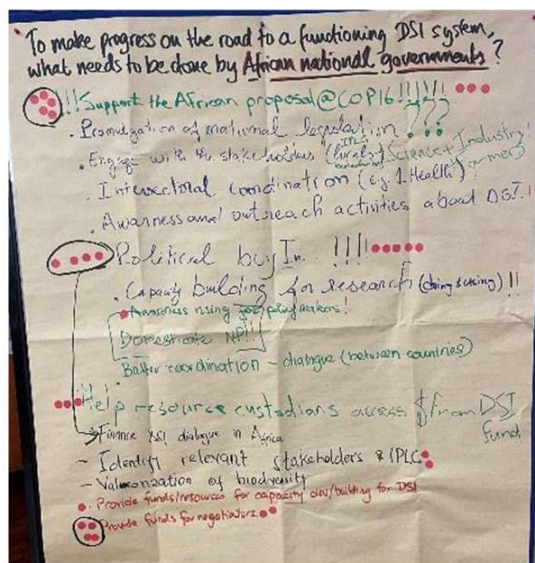 To make progress on the road to a functioning DSI system,
what needs to be done by African national governments?
!! Support the African proposal @COP16 !!!!!!
. Promulgation of national legislation ???
. Engage with the stakeholders ( Science + Industry!
farmers)
. Intersectoral coordination (eg. 1 Health)
. Awarness and outreach activities about DSI!
Political buy In !!!!
. Capacity building for research (doing & using) !!
Awareness rising for policy makers!
Domesticate NP!!
Better coordination - dialogue (between countries)
Help resource custodians access $ from DSI
fund
→ Finance DSI dialogue in Africa
- Identify relevant stakeholders & IPLC
- Valorization of biodiversity
. Provide funds/resources for capacity dev/building for DSI
Provide funds for negotiators